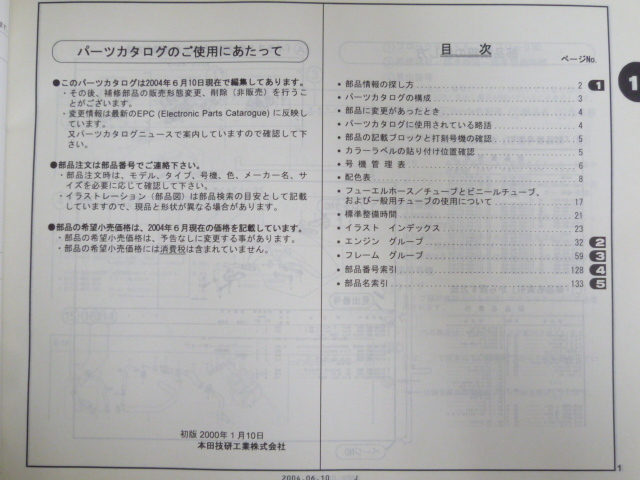 パーツカタログのご使用にあたって
●このパーツカタログは2004年６月10日現在で編集してあります。
・その後、補修部品の販売形態変更、削除（非販売）を行うこ
とがございます。
・変更情報は最新のEPC (Electronic Parts Catarogue) に反映し
ています。
又パーツカタログニュースで案内していますので確認して下
さい。
●部品注文は部品番号でご連絡下さい。
・部品注文時は、モデル、タイプ、号機、色、メーカー名、サ
イズを必要に応じて確認して下さい。
・イラストレーション（部品図）は部品検索の目安として記載
していますので、現品と形状が異なる場合があります。
●部品の希望小売価格は、2004年６月現在の価格を記載しています。
・部品の希望小売価格は、予告なしに変更する事があります。
・部品の希望小売価格には消費税は含まれていません。
初版 2000年１月10日
本田技研工業株式会社
目 次
ページNo.
・部品情報の探し方 2 1
・パーツカタログの構成 3
・部品に変更があったとき 4
・パーツカタログに使用されている略語 4
・部品の記載ブロックと打刻号機の確認 5
・カラーラベルの貼り付け位置確認 5
・号 機 管 理 表 6
・配色表 8
・フューエルホース／チューブとビニールチューブ、
および一般用チューブの使用について 17
・標準整備時間 21
・イラスト インデックス 23
・エンジン グループ 32 2
・フレーム グループ 59 3
・部品番号索引 128 4
・部品名索引 133 5
1
1
2004.06.10